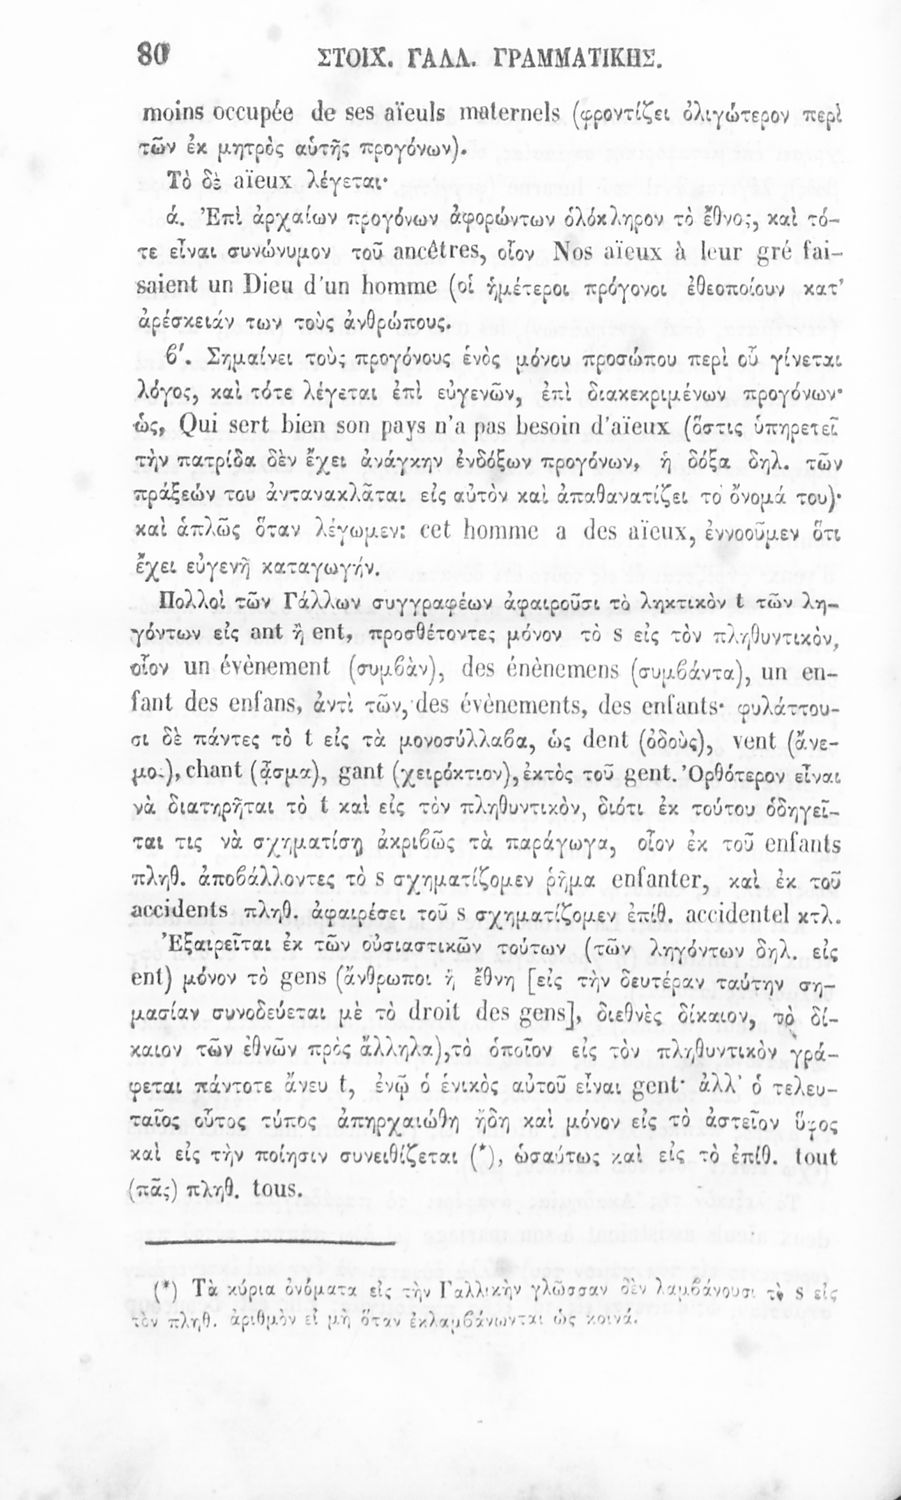 80 ΣΤΟΙΧ. ΓΑΛΛ. ΓΡΑΜΜΑΤΙΚΗΣ.
moins occupée de ses aïeuls maternels (φροντίζει ὀλιγώτερον περὶ
τῶν ἐκ μητρὸς αὑτῆς προγόνων).
Τὸ δὲ aïeux λέγεται·
ά. Ἐπὶ ἀρχαίων προγόνων ἀφορώντων ὁλόκληρον τὸ ἔθνος, καὶ τό-
τε εἶναι συνώνυμον τοῦ ancêtres, οἷον Nos aïeux à leur gré fai-
saient un Dieu d'un homme (οἱ ἡμέτεροι πρόγονοι ἐθεοποίουν κατ'
ἀρέσκειάν των τοὺς ἀνθρώπους.
ϐ′. Σημαίνει τοὺς προγόνους ἑνὸς μόνου προσώπου περὶ οὗ γίνεται
λόγος, καὶ τότε λέγεται ἐπὶ εὐγενῶν, ἐπὶ διακεκριμένων προγόνων·
ὡς, Qui sert bien son pays n'a pas besoin d'aïeux (ὅστις ὑπηρετεῖ
τὴν πατρίδα δὲν ἔχει ἀνάγκην ἐνδόξων προγόνων, ἡ δόξα δηλ. τῶν
πράξεών του ἀντανακλᾶται εἰς αὐτὸν καὶ ἀπαθανατίζει τὸ ὄνομά του)·
καὶ ἁπλῶς ὅταν λέγωμεν: cet homme a des aïeux, ἐννοοῦμεν ὅτι
ἔχει εὐγενῆ καταγωγήν.
Πολλοὶ τῶν Γάλλων συγγραφέων ἀφαιροῦσι τὸ ληκτικὸν t τῶν λη-
γόντων εἰς ant ἢ ent, προσθέτοντες μόνον τὸ s εἰς τὸν πληθυντικὸν,
οἷον un évènement (συμϐὰν), des énènemens (συμϐάντα), un en-
fant des enfans, ἀντὶ τῶν, des évènements, des enfants· φυλάττου-
σι δὲ πάντες τὸ t εἰς τὰ μονοσύλλαϐα, ὡς dent (ὀδοὺς), vent (ἄνε-
μος), chant (ᾆσμα), gant (χειρόκτιον), ἐκτὸς τοῦ gent. Ὀρθότερον εἶναι
νὰ διατηρῆται τὸ t καὶ εἰς τὸν πληθυντικὸν, διότι ἐκ τούτου ὁδηγεῖ-
ται τις νὰ σχηματίσῃ ἀκριϐῶς τὰ παράγωγα, οἷον ἐκ τοῦ enfants
πληθ. ἀποϐάλλοντες τὸ s σχηματίζομεν ῥῆμα enfanter, καὶ ἐκ τοῦ
accidents πληθ. ἀφαιρέσει τοῦ s σχηματίζομεν ἐπίθ. accidentel κτλ.
Ἐξαιρεῖται ἐκ τῶν οὐσιαστικῶν τούτων (τῶν ληγόντων δηλ. εἰς
ent) μόνον τὸ gens (ἄνθρωποι ἢ ἔθνη [εἰς τὴν δευτέραν ταύτην ση-
μασίαν συνοδεύεται μὲ τὸ droit des gens], διεθνὲς δίκαιον, τὸ δί-
καιον τῶν ἐθνῶν πρὸς ἄλληλα), τὸ ὁποῖον εἰς τὸν πληθυντικὸν γρά-
φεται πάντοτε ἄνευ t, ἐνῷ ὁ ἑνικὸς αὐτοῦ εἶναι gent· ἀλλ' ὁ τελευ-
ταῖος οὗτος τύπος ἀπηρχαιώθη ἤδη καὶ μόνον εἰς τὸ ἀστεῖον ὕφος
καὶ εἰς τὴν ποίησιν συνειθίζεται (*), ὡσαύτως καὶ εἰς τὸ ἐπίθ. tout
(πᾶς) πληθ. tous.
(*) Τὰ κύρια ὀνόματα εἰς τὴν Γαλλικὴν γλῶσσαν δὲν λαμϐάνουσι τὸ s εἰς
τὸν πληθ. ἀριθμὸν εἰ μὴ ὅταν ἐκλαμϐάνωνται ὡς κοινά.